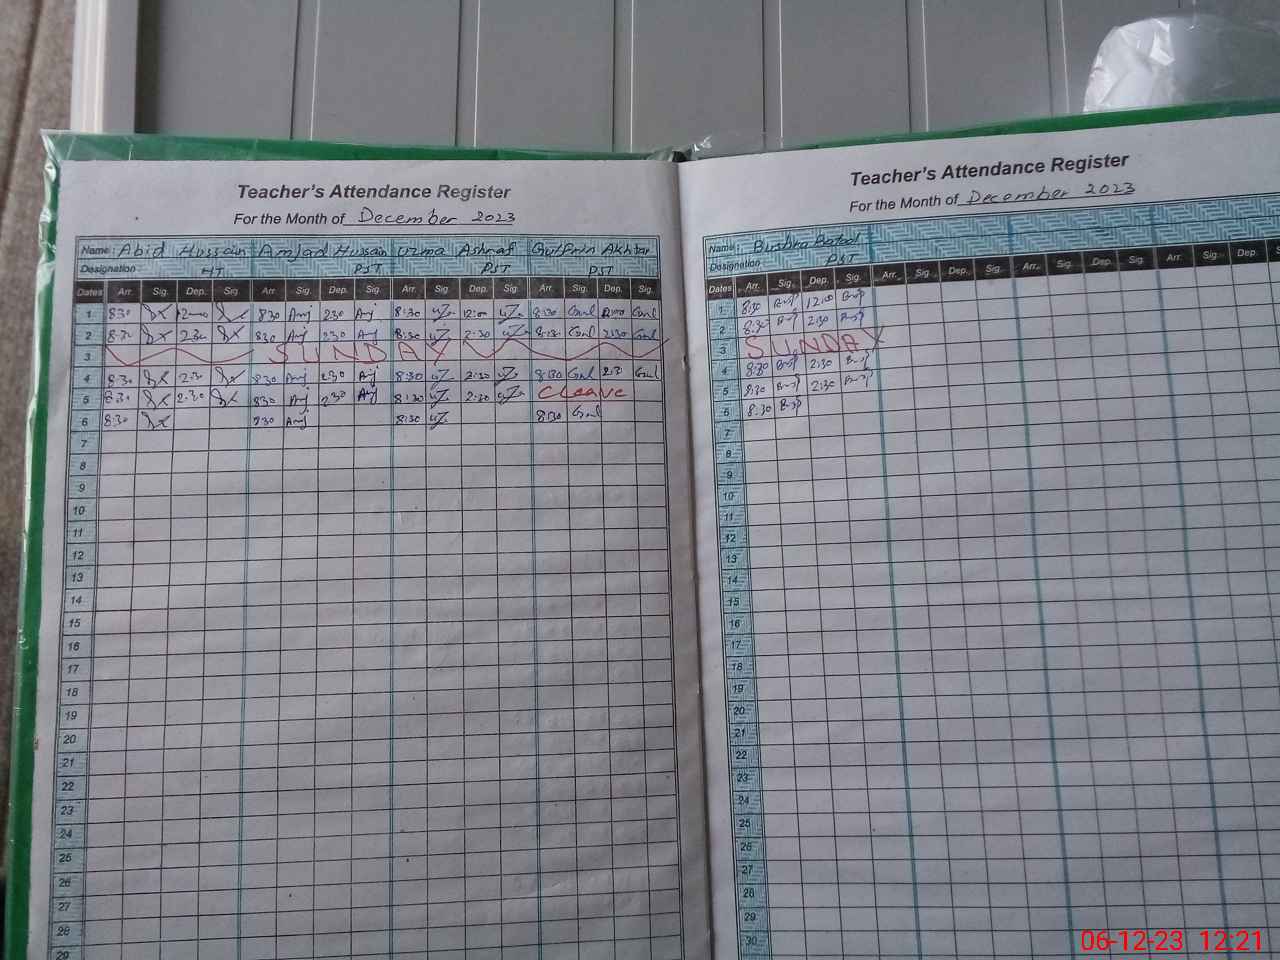 Teacher's Attendance Register
For the Month of December 2023
Name: Abid Hussain Amjad Hussain Uzma Ashraf Gulfrin Akhtar
Designation HT PST PST PST
Dates Arr. Sig. Dep. Sig. Arr. Sig. Dep. Sig. Arr. Sig. Dep. Sig. Arr. Sig. Dep. Sig.
1 8:30 12:00 830 Amj 230 Amj 8:30 UZ 12:00 UZ 8:30 Gul 12:00 Gul
2 8:30 2:30 830 Amj 230 Amj 8:30 UZ 2:30 UZ 8:30 Gul 2:30 Gul
3 SUNDAY
4 8:30 2:30 830 Amj 230 Amj 8:30 UZ 2:30 UZ 8:30 Gul 2:30 Gul
5 8:30 2:30 830 Amj 230 Amj 8:30 UZ 2:30 UZ C leave
6 8:30 830 Amj 8:30 UZ 8:30 Gul
7
8
9
10
11
12
13
14
15
16
17
18
19
20
21
22
23
24
25
26
27
28
29
Teacher's Attendance Register
For the Month of December 2023
Name: Bushra Batool
Designation PST
Dates Arr. Sig. Dep. Sig. Arr. Sig. Dep. Sig. Arr. Sig. Dep. Sig. Arr. Sig. Dep.
1 8:30 12:00
2 8:30 2:30
3 SUNDAY
4 8:30 2:30
5 8:30 2:30
6 8:30
7
8
9
10
11
12
13
14
15
16
17
18
19
20
21
22
23
24
25
26
27
28
29
30
06-12-23 12:21